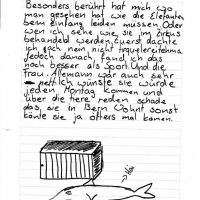 Besonders berührt hat mich wo
man gesehen hat wie die Elefanten
beim Einfang leiden müssen. Oder
wen ich sehe wie sie im Zirkus
behandeld werden. Zuerst dachte
ich nein nicht
Jedoch danach, fand ich das
noch besser als Sport. Und die
Frau Allemann war auch sehr
nett. Ich wünste sie würde
jeden Montag kommen und
über die tiere reden schade
das, sie in Bern Wohnt sonst
könte sie ja öfters mal komen.